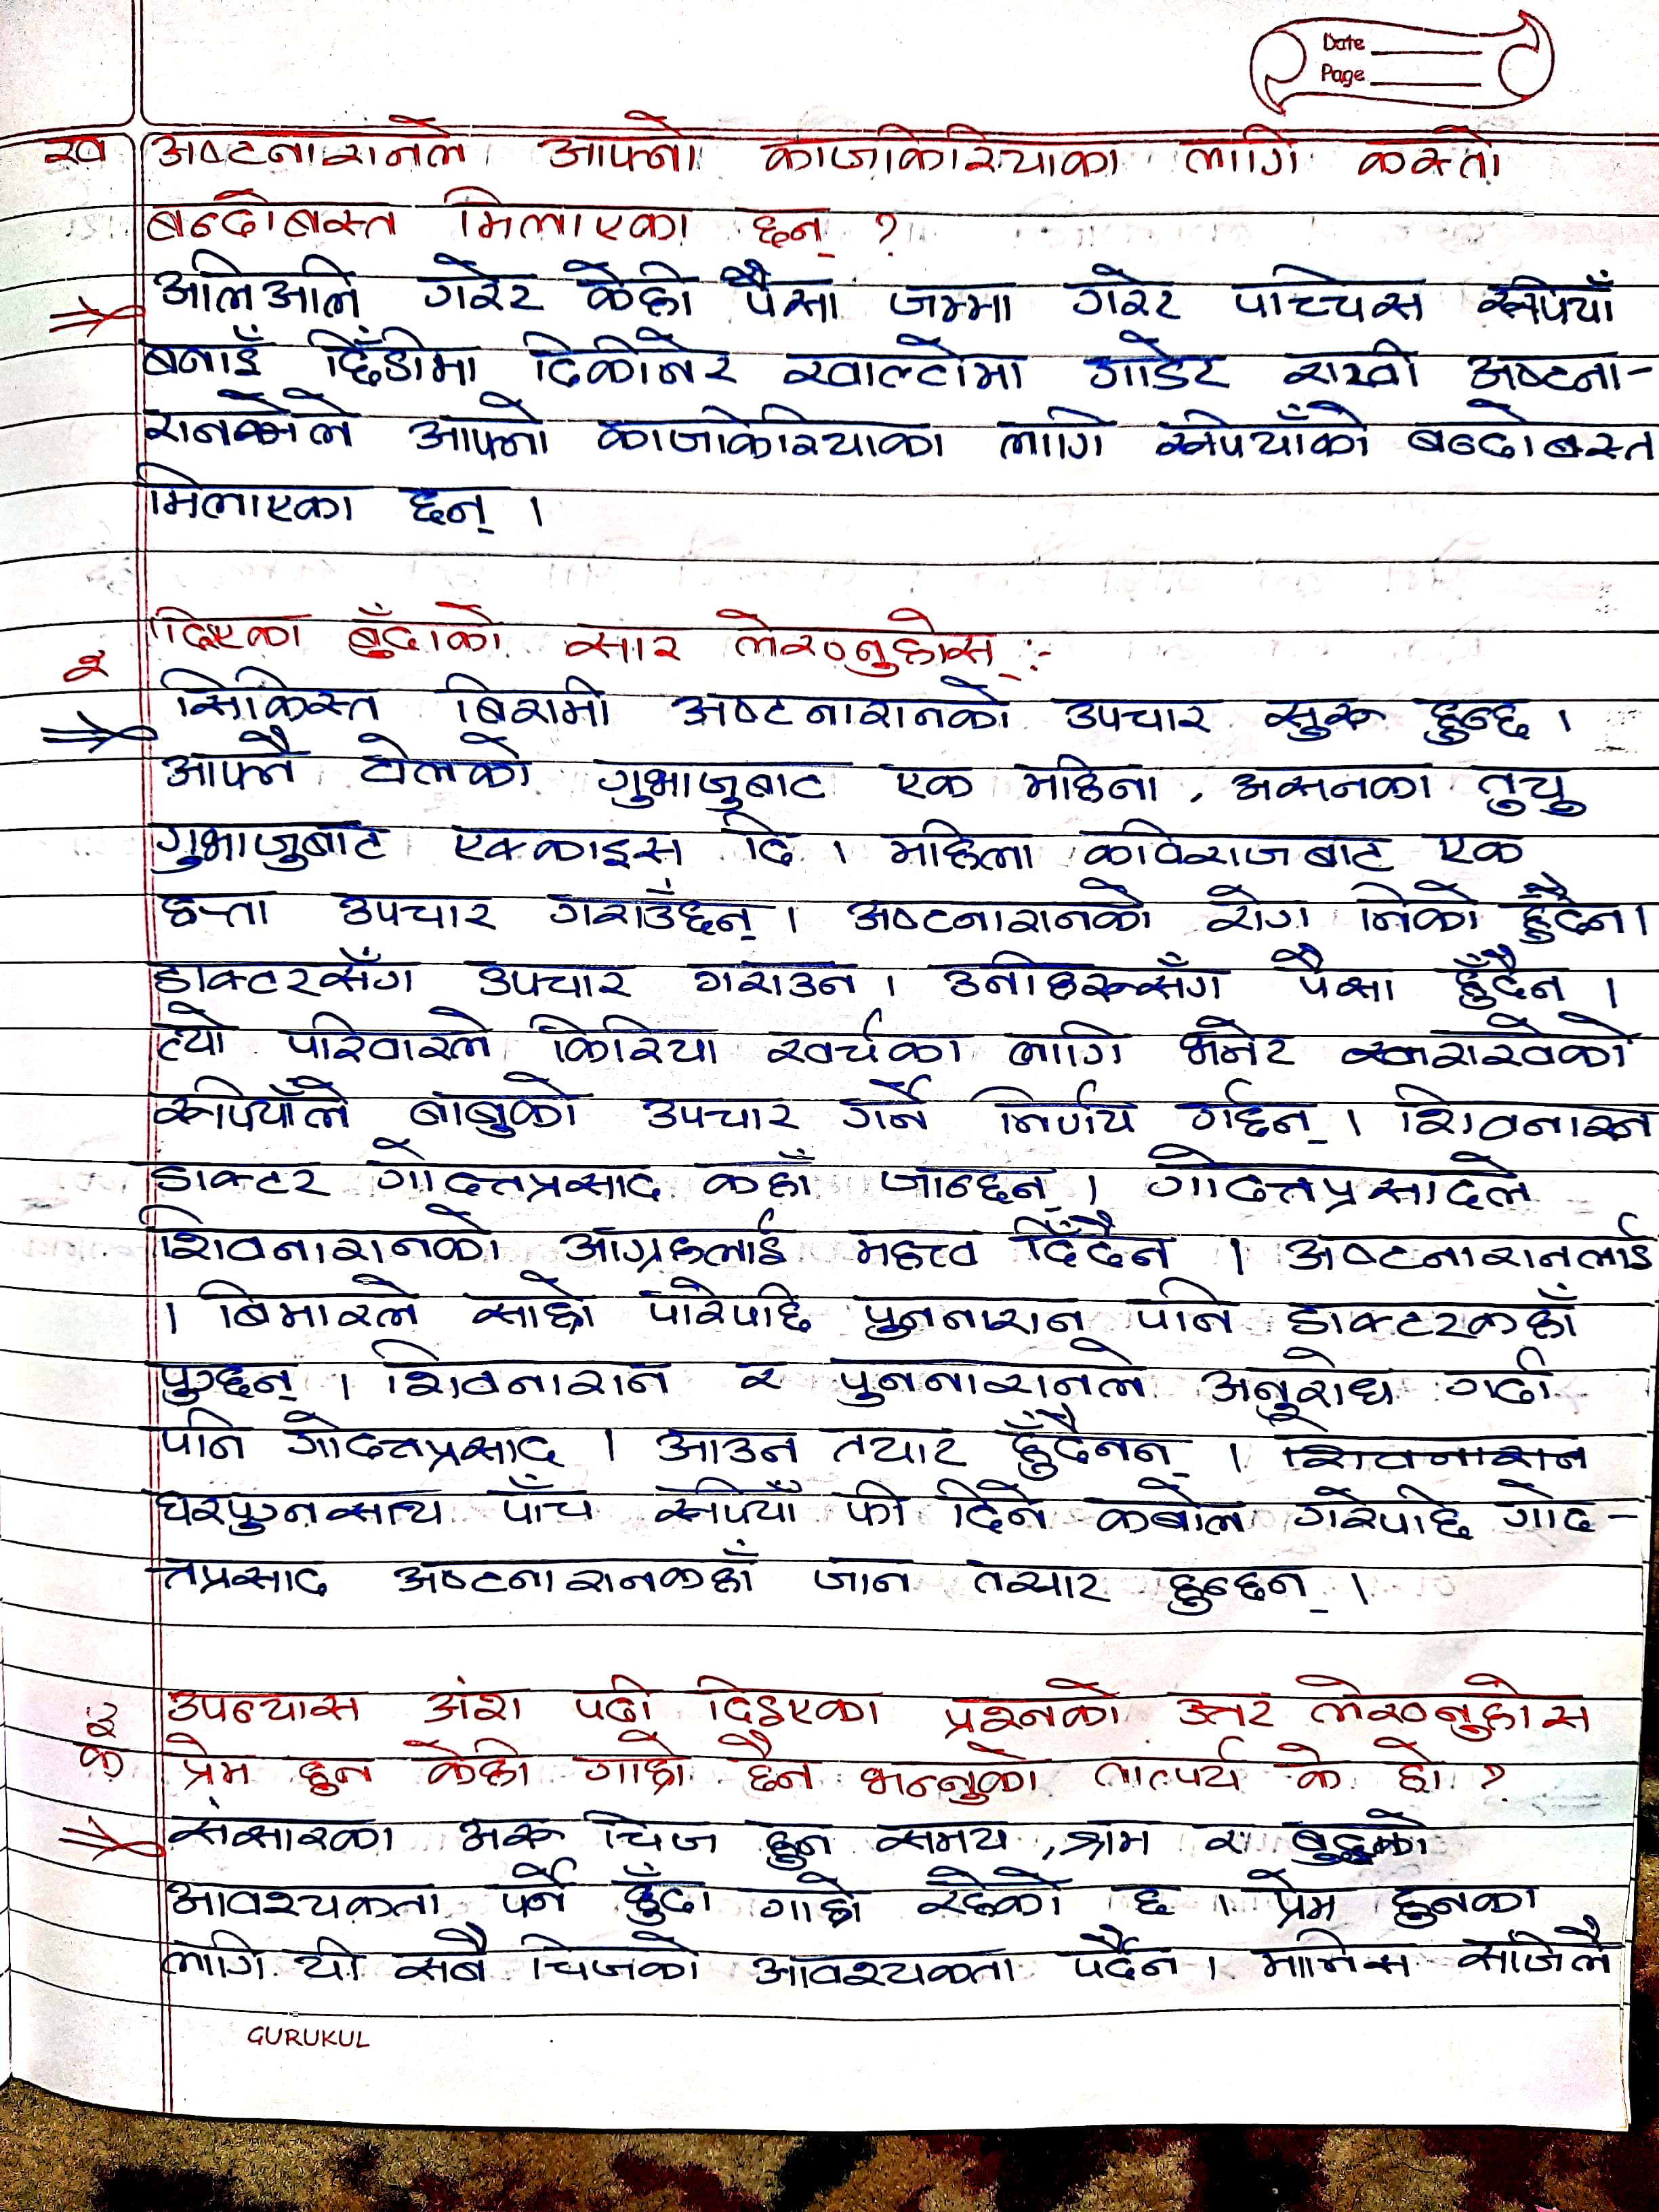 Date
Page
ख अष्टनारानले आफ्नो काजकिरियाका लागि कस्तो
बन्दोबस्त मिलाएका छन् ?
अलिअलि गरेर केही पैसा जम्मा गरेर पच्चिस रूपियाँ
बनाई छिँडीमा ढिकीनेर खाल्टोमा गाडेर राखी अष्टना-
रानले आफ्नो काजकिरियाका लागि रूपियाँको बन्दोबस्त
मिलाएका छन् ।
२ दिएका बुँदाको सार लेख्नुहोस् :-
सिकिस्त बिरामी अष्टनारानको उपचार सुरू हुन्छ ।
आफ्नै टोलको गुभाजुबाट एक महिना , असनका तुयु
गुभाजुबाट एक्काइस दि । महिला कविराजबाट एक
हप्ता उपचार गराउँछन् । अष्टनारानको रोग निको हुँदैन ।
डाक्टरसँग उपचार गराउन । उनीहरूसँग पैसा हुँदैन ।
त्यो परिवारले किरिया खर्चका लागि भनेर राखेको
रूपियाँले बाबुको उपचार गर्ने निर्णय गर्छन् । शिवनारन
डाक्टर गोदत्तप्रसाद कहाँ जान्छन् । गोदत्तप्रसादले
शिवनारानको आग्रहलाई महत्त्व दिँदैन । अष्टनारानलाई
। बिमारले साह्रो पारेपछि पुननारान पनि डाक्टरकहाँ
पुग्छन् । शिवनारान र पुननारानले अनुरोध गर्दा
पनि गोदत्तप्रसाद । आउन तयार हुँदैनन् । शिवनारान
घरपुग्नसाथ पाँच रूपियाँ फी दिने कबोल गरेपछि गोद-
त्तप्रसाद अष्टनारानकहाँ जान तयार हुन्छन् ।
३ उपन्यास अंश पढी दिइएका प्रश्नको उत्तर लेख्नुहोस
क प्रेम हुन केही गाह्रो छैन भन्नुको तात्पर्य के हो ?
संसारका अरू चिज हुन समय , श्रम र बुद्धको
आवश्यकता पर्ने हुँदा गाह्रो रहेको छ । प्रेम हुनका
लागि यी सबै चिजको आवश्यकता पर्दैन । मानिस सजिलै
GURUKUL